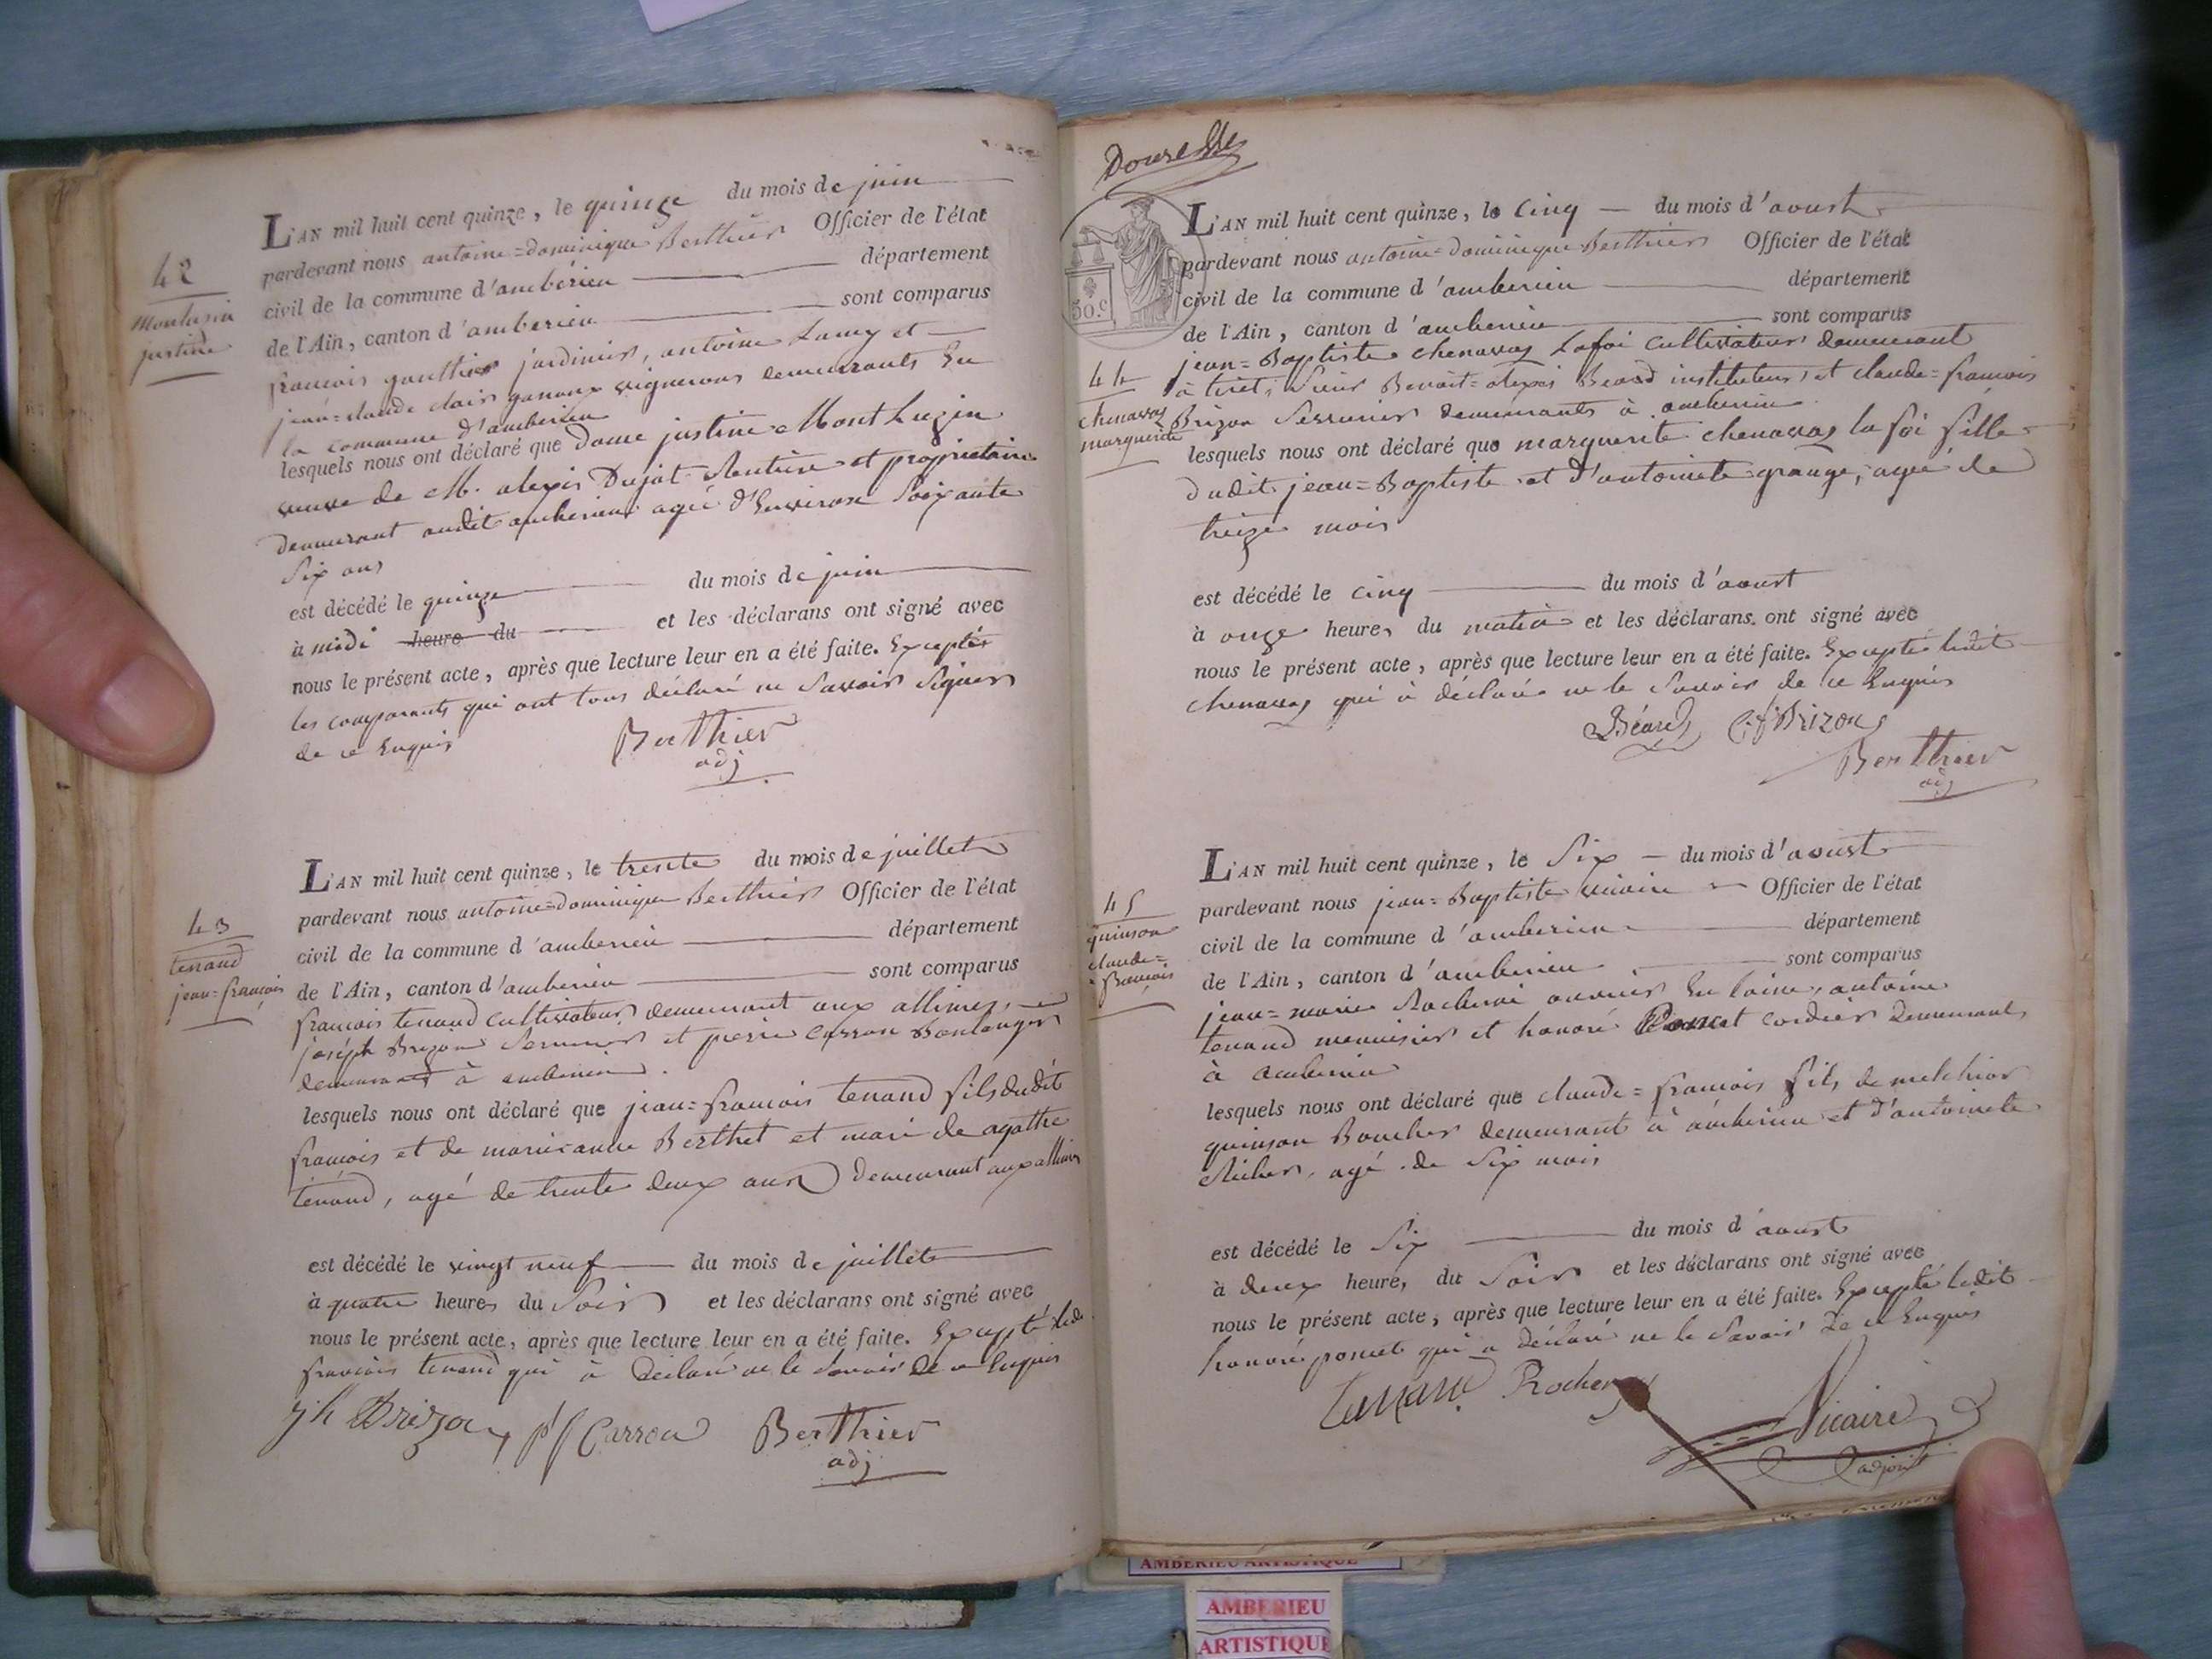 42
Montlusin
justine
L'AN mil huit cent quinze, le quinze du mois de juin
pardevant nous antoine=dominique Berthier Officier de l'état
civil de la commune d'ambérieu département
de l'Ain, canton d'amberieu sont comparus
francois gauthier jardinier, antoine Lamy et
jean=claude clair vignerons demeurants En
la commune d'amberieu
lesquels nous ont déclaré que Dame justine MontLuzin
veuve de M. alexis Dujat Rentiere et propriétaire
demeurant audit amberieu agée d'Environ Soixante
Six ans
est décédé le quinze du mois de juin
à midi heure du et les déclarans ont signé avec
nous le présent acte, après que lecture leur en a été faite. Exceptés
les comparants qui ont tous déclaré ne Savoir Signer
de ce Enquis
Berthier
adj
43
tenand
jean=françois
L'AN mil huit cent quinze, le trente du mois de juillet
pardevant nous antoine=dominique Berthier Officier de l'état
civil de la commune d'amberieu département
de l'Ain, canton d'amberieu sont comparus
francois tenand cultivateur demeurant aux allimes,
joseph Brizon Serrurier et pierre Carron Boulanger
demeurant à amberieu.
lesquels nous ont déclaré que jean=francois tenand fils dudit
francois et de marieanne Berthet et mari de agathe
tenand, agé de trente deux ans Demeurant aux allimes
est décédé le vingt neuf du mois de juillet
à quatre heures du Soir et les déclarans ont signé avec
nous le présent acte, après que lecture leur en a été faite. Excepté ledit
francois tenand qui à Déclaré ne le Savoir De ce Enquis
jh Brizon p Carron Berthier
adj
50.C
44
chenavas
marguerite
L'AN mil huit cent quinze, le cinq du mois d'aoust
pardevant nous antoine=dominique Berthier Officier de l'état
civil de la commune d'amberieu département
de l'Ain, canton d'amberieu sont comparus
jean=Baptiste chenavas Lafoi Cultivateur demeurant
à tiret, Sieur Benoit=alexis Beard instituteur, et claude=francois
Brizon Serrurier demeurants à amberieu
lesquels nous ont déclaré que marguerite chenavas la foi fille
dudit jean=Baptiste et d'antoinete grange, agée de
treize mois
est décédé le cinq du mois d'aoust
à onze heures du matin et les déclarans ont signé avec
nous le présent acte, après que lecture leur en a été faite. Excepté ledit
chenavas qui à déclaré ne le Savoir de ce Enquis
Béard C. f Brizon
Berthier
adj
45
quinson
claude=
francois
L'AN mil huit cent quinze, le Six du mois d'aoust
pardevant nous jean=Baptiste vicaire Officier de l'état
civil de la commune d'amberieu département
de l'Ain, canton d'amberieu sont comparus
jean=marie ouvrier En laine, antoine
tenand menuisier et honoré Poncet cordier Demeurants
à amberieu
lesquels nous ont déclaré que claude=francois fils de melchior
quinson Boucher demeurant à amberieu et d'antoinete
agé de Six mois
est décédé le Six du mois d'aoust
à deux heures du Soir et les déclarans ont signé avec
nous le présent acte, après que lecture leur en a été faite. Excepté ledit
honoré poncet qui a déclaré ne le Savoir De ce Enquis
tenand Rocheray
Vicaire
adjoint
AMBERIEU ARTISTIQUE
AMBERIEU
ARTISTIQUE